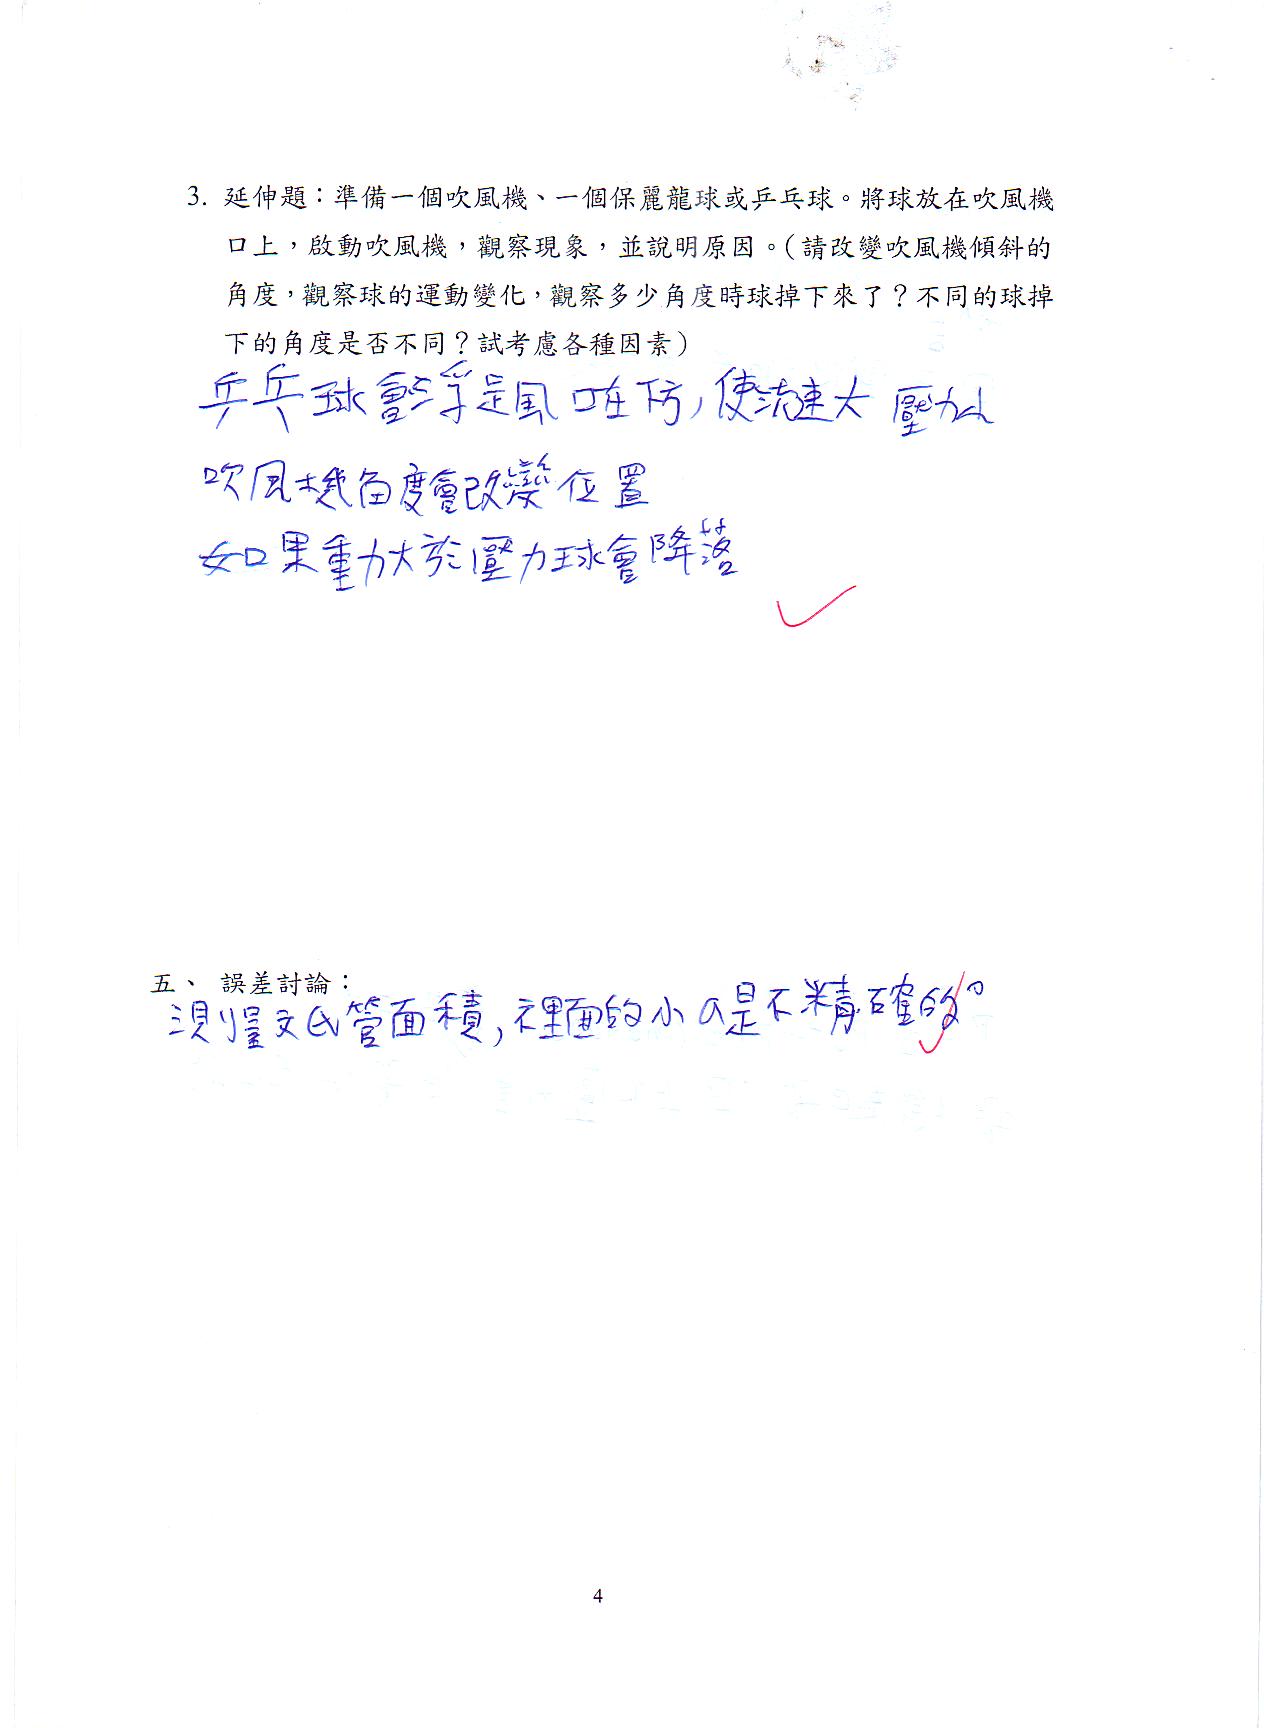 3. 延伸題：準備一個吹風機、一個保麗龍球或乒乓球。將球放在吹風機
口上，啟動吹風機，觀察現象，並說明原因。（請改變吹風機傾斜的
角度，觀察球的運動變化，觀察多少角度時球掉下來了？不同的球掉
下的角度是否不同？試考慮各種因素）
乒乓球會浮是風 在下方，使流速大 壓力小
吹風機角度會改變位置
如果重力大於壓力球會降落
五、 誤差討論：
測量文氏管面積，裡面的小a是不精確的。
4